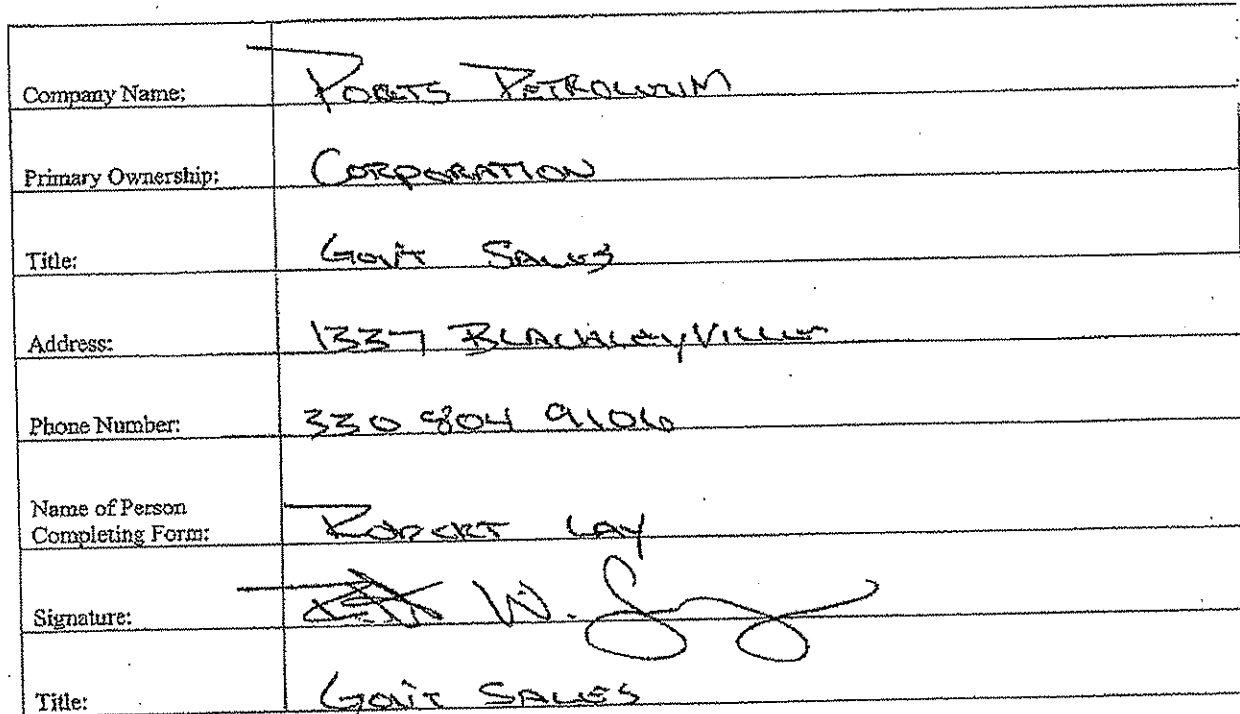 Company Name: PORTS PETROLEUM
Primary Ownership: CORPORATION
Title: GOV'T SALES
Address: 1337 BLACHLEYVILLE
Phone Number: 330 804 9106
Name of Person
Completing Form: ROBERT LAY
Signature: W.
Title: GOV'T SALES